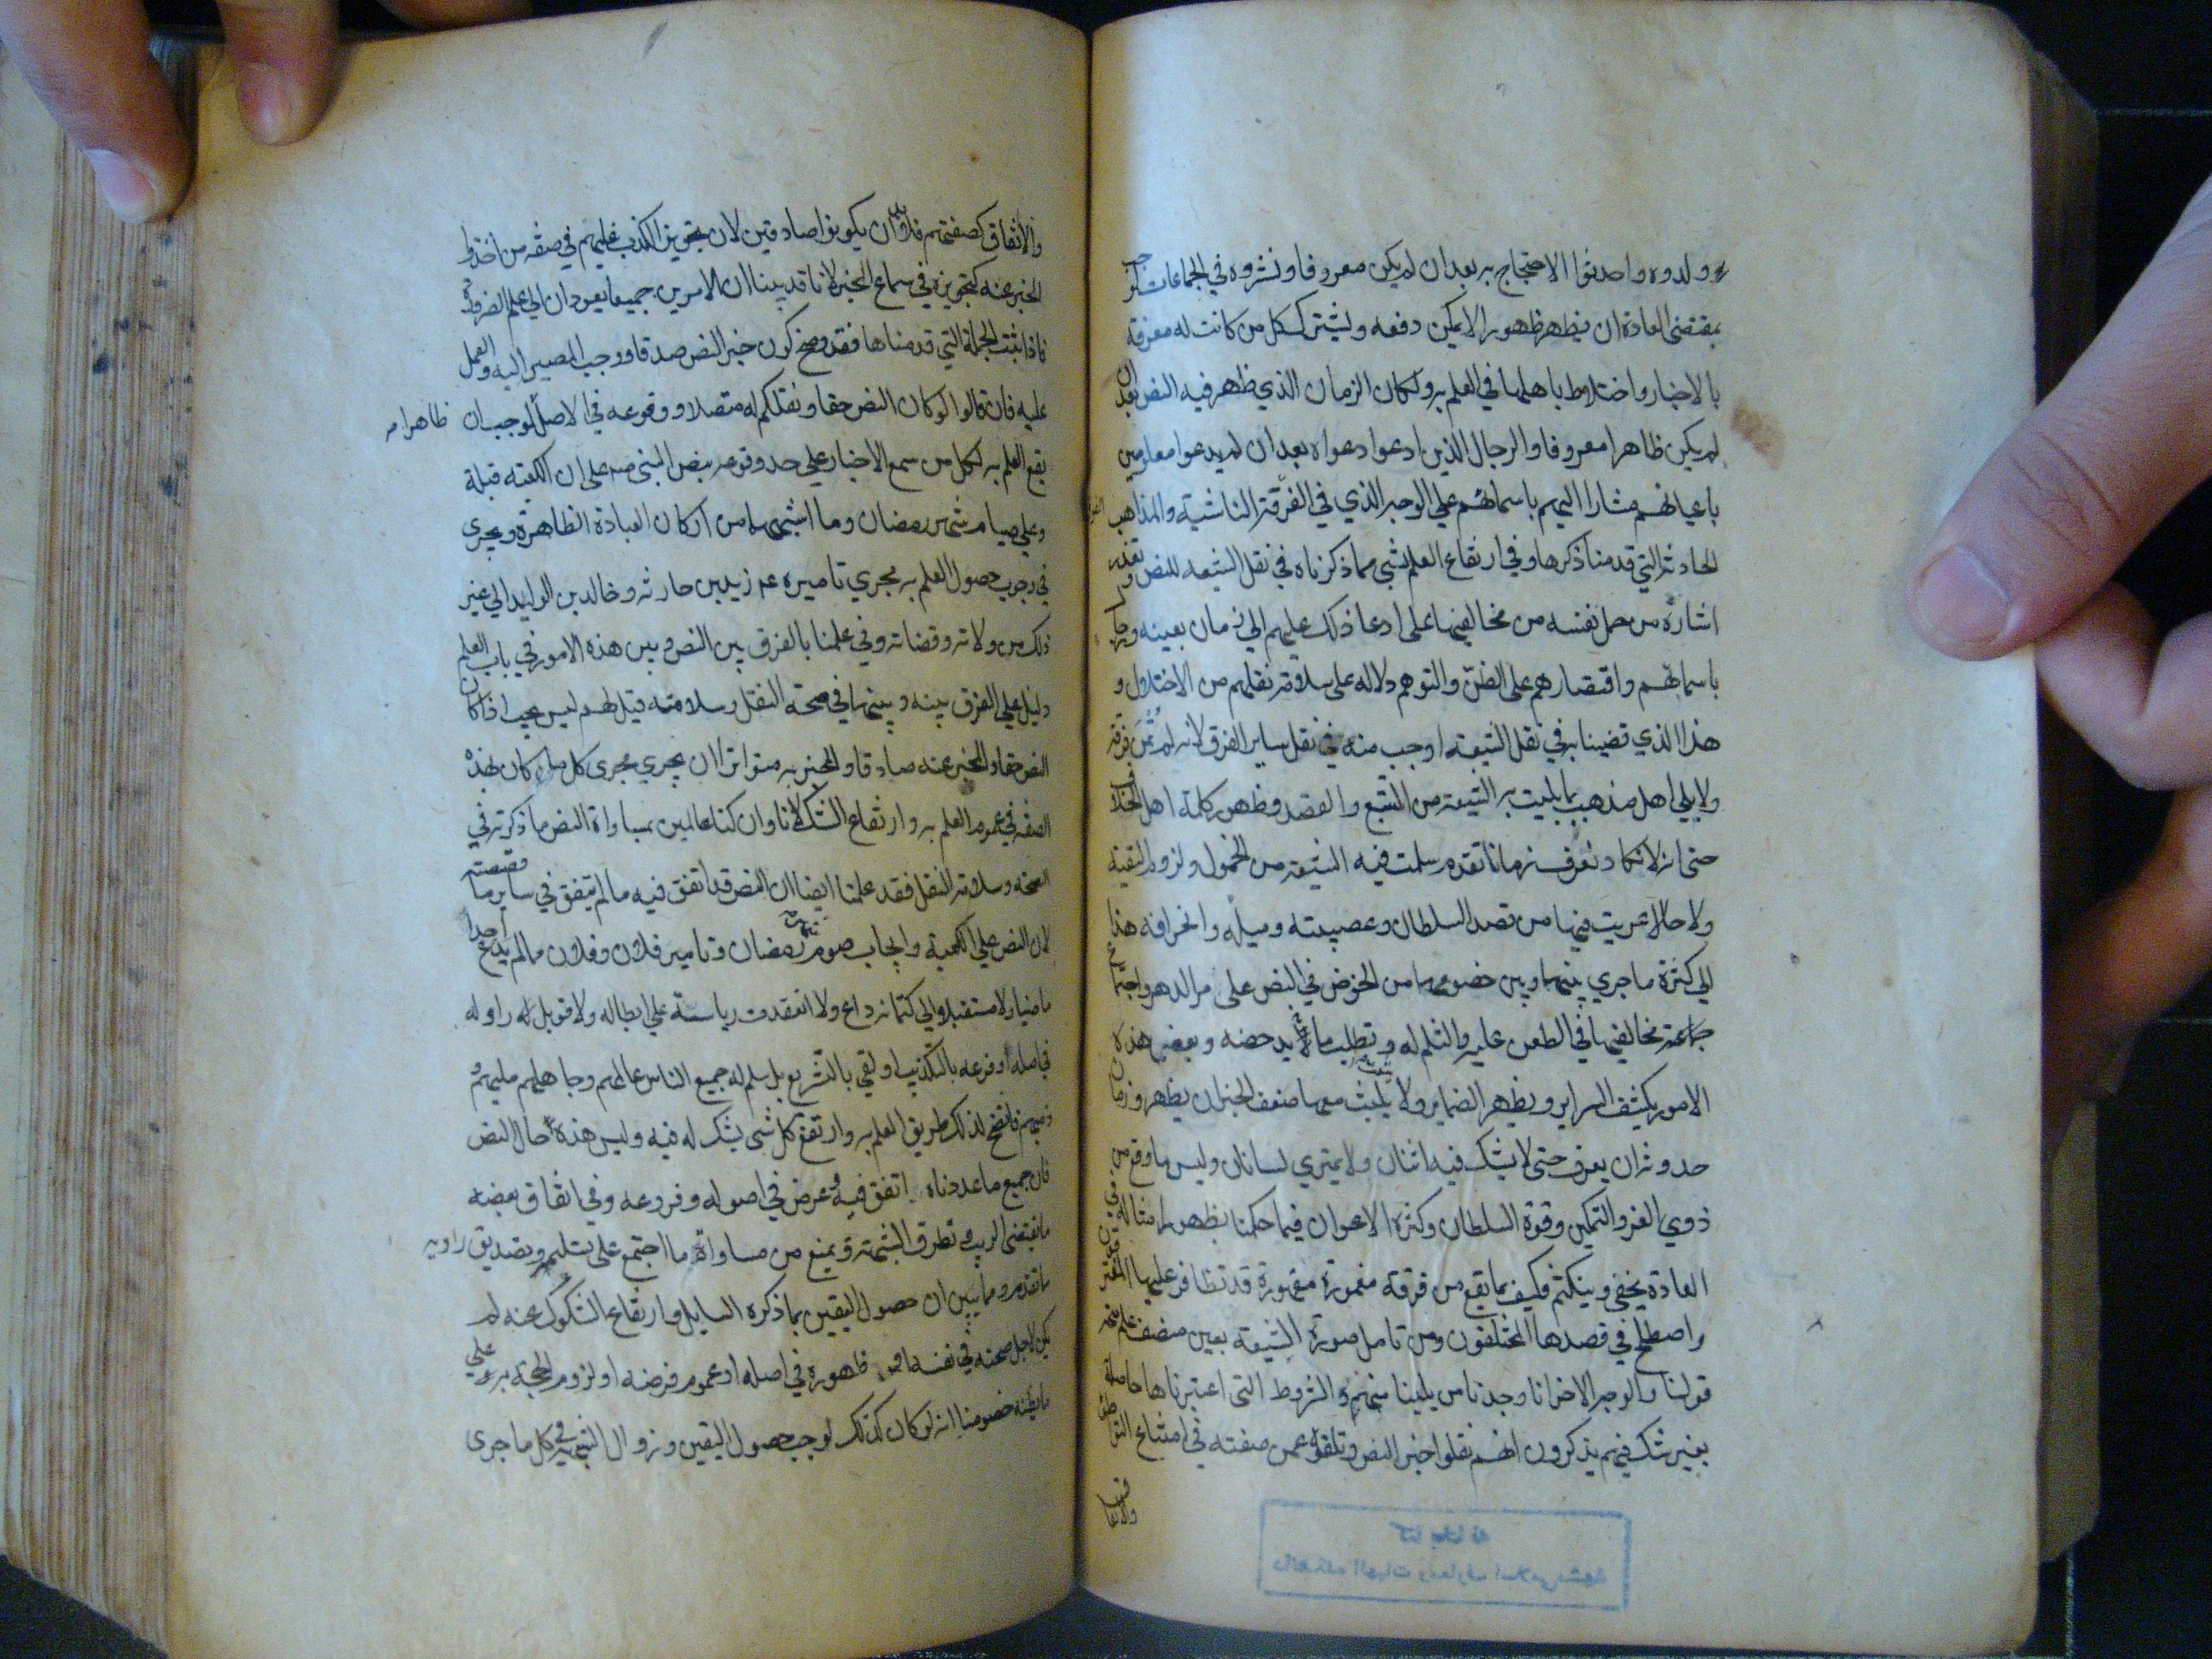 وولدوه واحدثوا الاحتجاج به بعد ان لم يكن معروفا ونشروه في الجماعات لوجب
بمقتضى العادة ان يظهر ظهورا لا يمكن دفعه ويشترك كل من كانت له معرفة
بالاخبار واختلاط باهلها في العلم به ولكان الزمان الذي ظهر فيه النص بعد ان
لم يكن ظاهرا معروفا والرجال الذين ادعوا دعواه بعد ان لم يدعوا معلومين
باعيانهم مشارا اليهم باسمائهم على الوجه الذي في الفرقة الناشية والمذاهب
الحادثة التي قدمنا ذكرها وفي ارتفاع العلم بشي مما ذكرناه في نقل الشيعة للنص وتعذر
اشارة من حمل نفسه من مخالفيها على ادعا ذلك عليهم الى زمان بعينه ورجال
باسمائهم واقتصارهم على الظن والتوهم دلاله على سلامة نقلهم من الاختلال و
هذا الذي قضينا به في نقل الشيعة اوجب منه في نقل ساير الفرق لانه لم تمن فرقة
ولا بلي اهل مذهب بما بليت به الشيعة من التتبع والقصد وظهور كلمة اهل الخلاف
حتى انا لا نكاد نعرف زمانا تقدم سلمت فيه الشيعة من الخمول ولزوم التقية
ولا حالا عريت فيها من قصد السلطان وعصبيته وميله وانحرافه هذا
الى كثرة ما جرى بينها وبين خصومها من الخوض في النص على مر الدهر واجتماع
جماعة مخالفيها في الطعن عليه والثلم له وتطلب ما يدحضه وبعض هذه
الامور يكشف السراير ويظهر الضماير ولا يلبث معها ضعف الخبر ان يظهر وزمان
حدوثه ان يعرف حتى لا يشك فيه اثنان ولا يمتري لسانان وليس ما وقع من
ذوي العز والتمكين وقوة السلطان وكثرة الاعوان فيما حكمنا بظهور امثاله في
العادة يخفى وينكتم فكيف بما يقع من فرقة مغمورة مقهورة قد تظافر عليها المفترقون
واصطلح في قصدها المختلفون ومن تامل صورة الشيعة بعين منصف علم صحة
قولنا والوجه الاخر انا وجدنا من يلينا منهم والشروط التي اعتبرناها حاصلة
بغير شك فيهم يذكرون انهم نقلوا خبر النص وتلقوه عمن صفته في امتناع التواطئ
والاتفاق
والاتفاق كصفتهم فلابد ان يكونوا صادقين لان تجويز الكذب عليهم في صفة من اخذوا
الخبر عنه كتجويزه في سماع الخبر لانا قد بينا ان الامرين جميعا يعودان الى علم الضرورة
فاذا ثبتت الجملة التي قدمناها فقد وضح كون خبر النص صدقا ووجب المصير اليه والعمل
عليه فان قالوا لو كان النص حقا ونقلكم له متصلا ووقوعه في الاصل لوجب ان
ظاهرا
يقع العلم به لكل من سمع الاخبار على حد وقوعه بنص النبي صه على ان الكعبة قبلة
وعلى صيام شهر رمضان وما اشبهها من اركان العبادة الظاهرة ويجري
في وجوب حصول العلم به مجرى تاميره عم زيد بن حارثة وخالد بن الوليد الى غير
ذلك من ولاته وقضاته وفي علمنا بالفرق بين النص وبين هذه الامور في باب العلم
دليل على الفرق بينه وبينها في صحة النقل وسلامته قيل لهم ليس يجب اذا كان
النص حقا والمخبر عنه صادقا والخبر به متواترا ان يجري مجرى كل ما كان بهذه
الصفة في عموم العلم به وارتفاع الشك لانا وان كنا عالمين بمساواة النص ما ذكرته في
الصحة وسلامة النقل فقد علمنا ايضا ان النص قد اتفق فيه ما لم يتفق في ساير ما قصصته
لان النص على الكعبة وايجاب صوم شهر رمضان وتامير فلان وفلان مما لم يدع احدا
ماضيا ولا مستقبلا الى كتمانه داع ولا انعقدت رياسة على ابطاله ولا قوبل له راو له
في اصله او فرعه بالتكذيب او لقي بالتشريع بل سلم له جميع الناس عالمهم وجاهلهم مليهم و
ذميهم فاتضح لذلك طريق العلم به وارتفع كل شي يشكك له فيه وليس هذه حال النص
فان جميع ما عددناه اتفق فيه وعرض في اصوله وفروعه وفي اتفاق بعضه
ما يقتضي الريب وتطرق الشبهة ويمنع من مساواة ما اجتمع على تسليمه وتصديق راويه
ما تقدم ومما يبين ان حصول اليقين بما ذكره السايل وارتفاع الشكوك عنه لم
يكن لاجل صحته في نفسه او ظهوره في اصله او عموم فرضه او لزوم الحجة به على
ما يظنه خصومنا انه لو كان كذلك لوجب حصول اليقين وزوال الشبهة في كل ما جرى